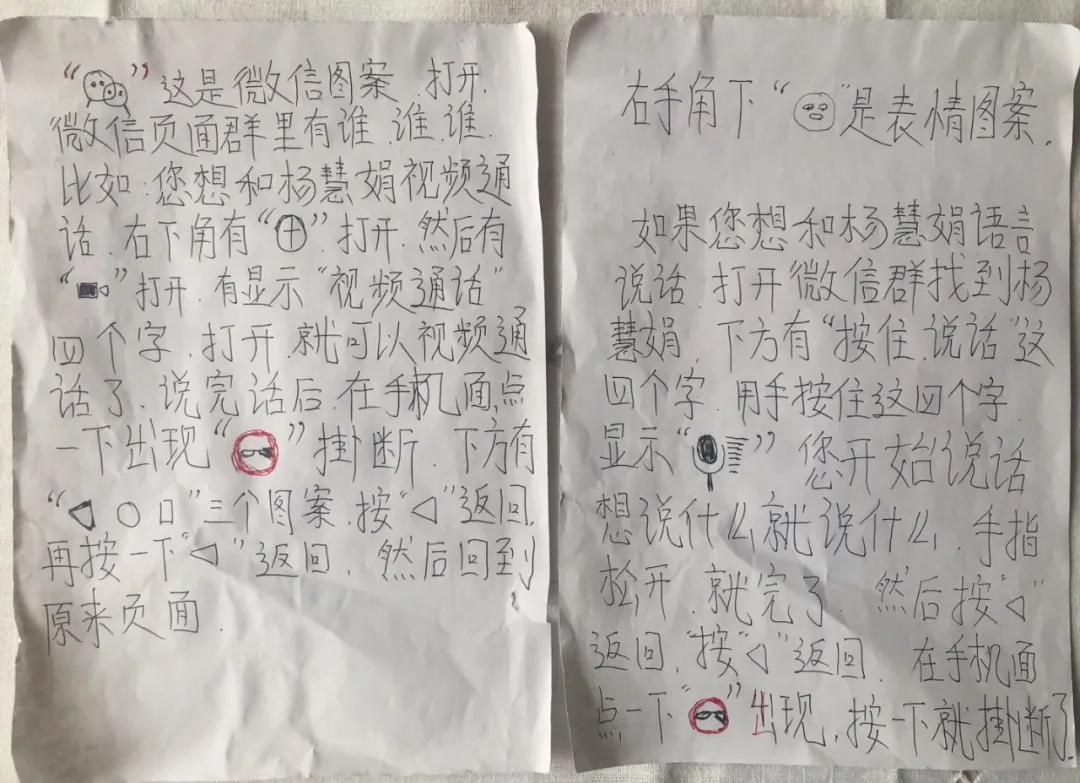 “ ” 这是微信图案.打开.
微信页面群里有谁.谁.谁.
比如:您想和杨慧娟视频通
话.右下角有“⊕”.打开.然后有
“ ”打开.有显示“视频通话”
四个字.打开.就可以视频通
话了.说完话后.在手机面点
一下出现“ ”掛断.下方有
“◁ ○ □”三个图案.按“◁”返回.
再按一下“◁”返回.然后回到
原来页面.
右手角下“ ”是表情图案.
如果您想和杨慧娟语言
说话.打开微信群找到杨
慧娟.下方有“按住.说话”这
四个字.用手按住这四个字.
显示“ ”您开始说话
想说什么就说什么.手指
松开.就完了.然后按“◁”
返回.“按“◁”返回.在手机面
点一下“ ”出现.按一下就掛断了